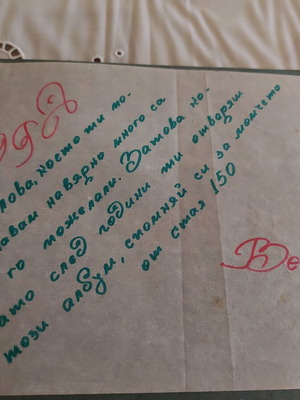 лова, което ти по-
авам навярно много са
го пожелали. Затова ко-
ато след години ти отвориш
този албум, спомняй си за момчето
от стая 150
Ве